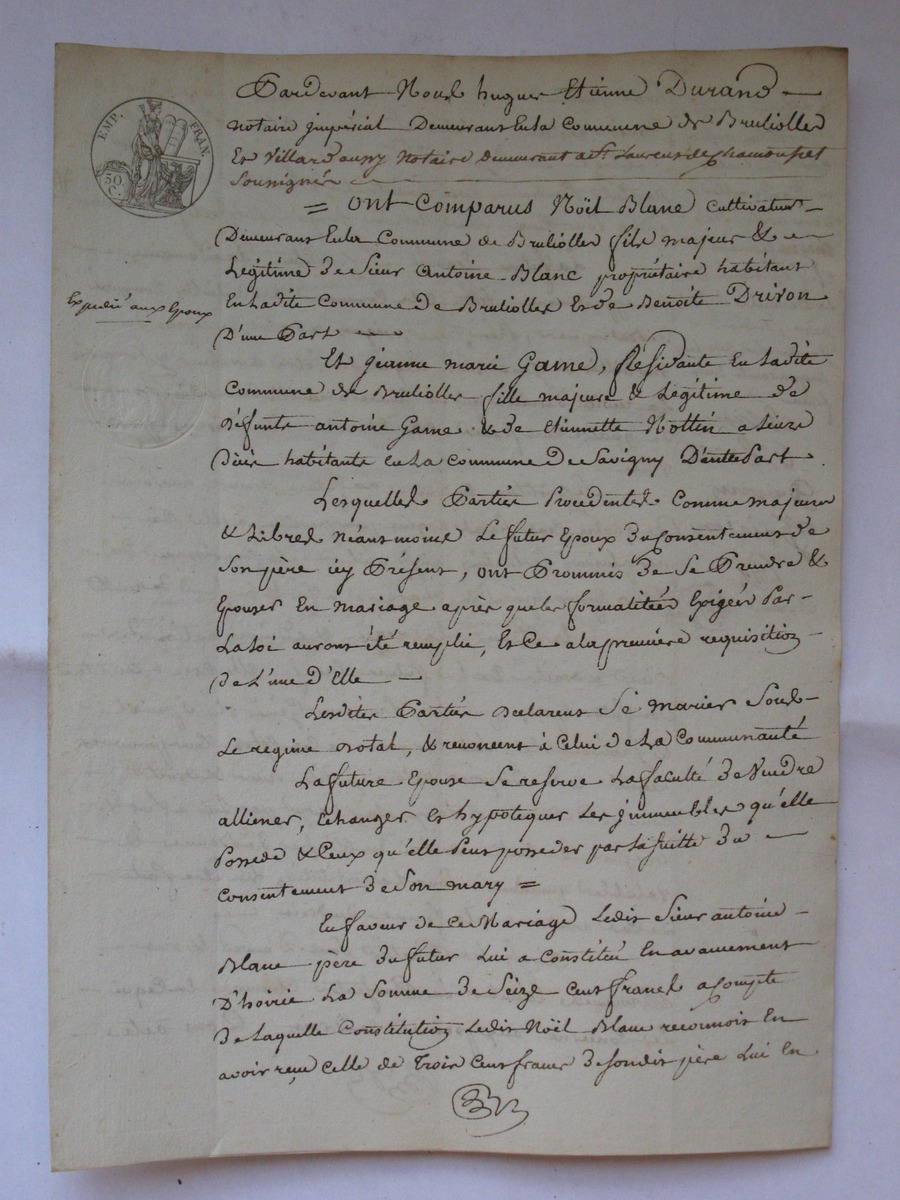 EMP. FRAN.
50 C.
Pardevant Nous hugues Etienne Durand
notaire jmpérial Demeurant En la Commune de Brulioles
Et Villard aussy Notaire Demeurant a St. Laurens de Chamousset
Soussignés
= ont Comparus Noël Blanc cultivateur
Demeurant En la Commune de Brulioles fils majeur &
Légitime de Sieur Antoine Blanc propriétaire habitant
En Ladite Commune de Brulioles Et de Benoite Drivon
D'une Part
Expédié aux Epoux
Et jeanne marie Game, Résidante En Ladite
Commune de Brulioles fille majeure & Légitime de
défunts antoine Game & de Etiennette Nottin
habitante En La Commune De Savigny D'autre Part
Lesquelles Parties Procédentes Comme majeures
& Libres néant moins Le futur Epoux du Consentement de
Son père icy Présent, ont Prommis de Se Prendre &
Epouser En mariage après que les formalitées Exigées Par
La Loi auront été remplie, Et Ce a la première requisition
de L'une d'Elle
Lesdites Parties declarent Se marier Sous
Le regime dotal, & renoncent à Celui de La Communauté
La future Epouse Se reserve La faculté de Vendre
alliener, Echanger Et hypotequer Les jmmeubles qu'elle
Possede & Ceux qu'elle Peut posseder par La Suitte du
Consentement de Son mary =
En faveur de Ce Mariage Ledit Sieur antoine
Blanc père du futur Lui a Constitué En avancement
D'hoirie La Somme de Seize Cent francs a compte
de Laquelle Constitution Ledit Noël Blanc reconnoit En
avoir reçu Celle de Trois Cent francs de Sondit père Lui En